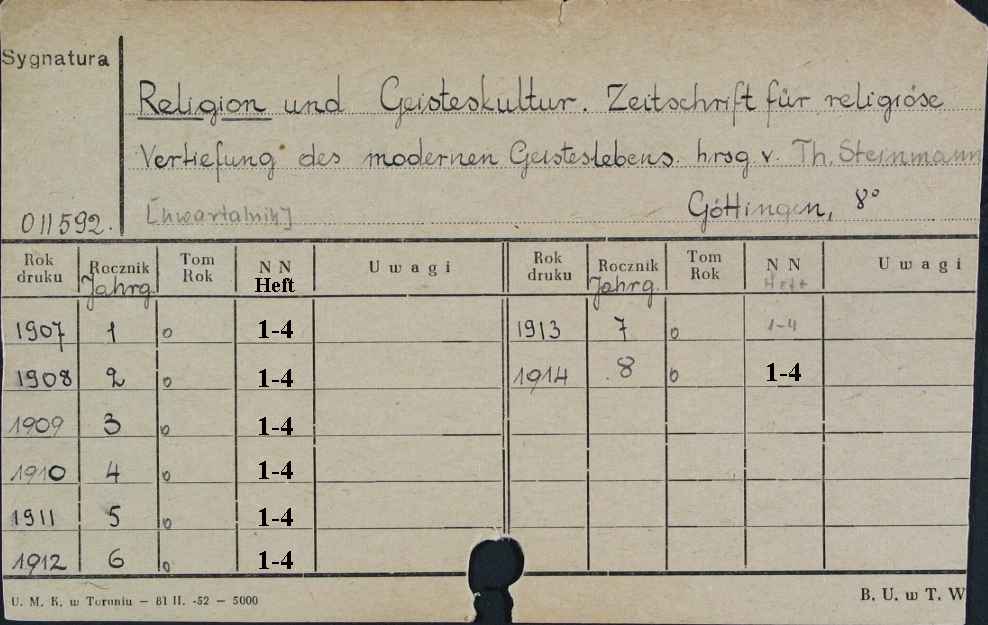 Sygnatura
Religion und Geisteskultur. Zeitschrift für religiöse
Vertiefung des modernen Geisteslebens hrsg v. Th. Steinmann
011592. [kwartalnik] Göttingen, 8°
Rok druku Rocznik Jahrg. Tom Rok NN Heft Uwagi Rok druku Rocznik Jahrg. Tom Rok NN Heft Uwagi
1907 1 0 1-4 1913 7 0 1-4
1908 2 0 1-4 1914 8 0 1-4
1909 3 0 1-4
1910 4 0 1-4
1911 5 0 1-4
1912 6 0 1-4
U. M. K. w Toruniu — 81 II. -52 — 5000 B. U. w T. W